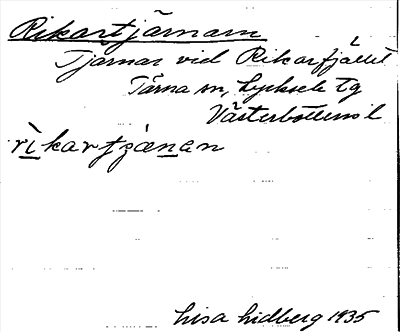 Rikartjärnarn
Tjärnar vid Rikarfjället
Tärna sn, Lycksele tg
Västerbottens l
rikartjænan
Lisa Lidberg 1935